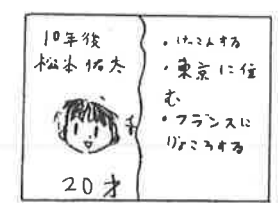 10年後
松本佑太
20才
・けっこんする
・東京に住
む
・フランスに
りょこうする